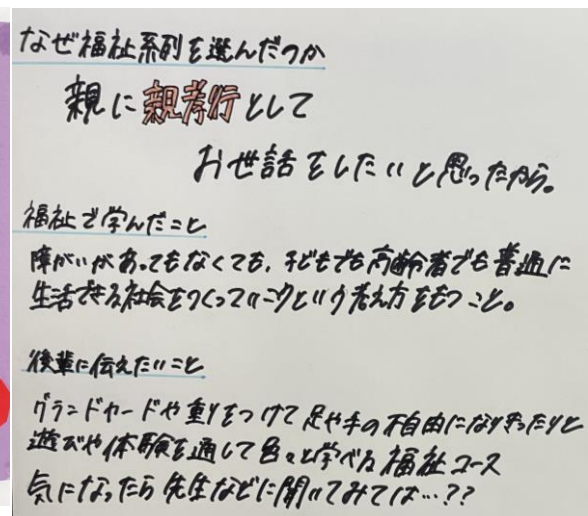 なぜ福祉系列を選んだのか
親に親孝行として
お世話をしたいと思ったから。
福祉で学んだこと
障がいがあってもなくても、子どもでも高齢者でも普通に
生活できる社会をつくっていこうという考え方をもつこと。
後輩に伝えたいこと
グランドカードや重りをつけて足や手の不自由になりきったりと
遊びや体験を通して色々と学べる福祉コース
気になったら先生などに聞いてみては…??